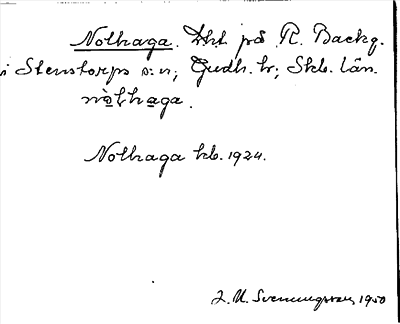 Nolhaga. Lht på R. Backg.
i Stenstorps s:n, Gudh. hr; Skb. län.
nòlhaga.
Nolhaga kb. 1924.
J. A. Svenungsson 1950